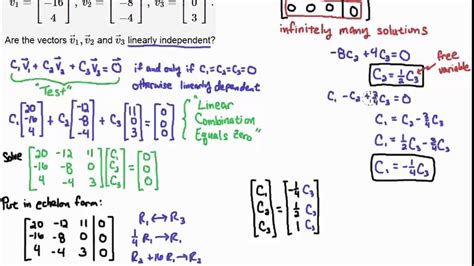 v⃗₁ = [ -16 4 ], v⃗₂ = [ -8 -4 ], v⃗₃ = [ 0 3 ].
Are the vectors v⃗₁, v⃗₂ and v⃗₃ linearly independent?
C₁V⃗₁ + C₂V⃗₂ + C₃V⃗₃ = 0⃗ if and only if C₁=C₂=C₃=0
"Test" otherwise linearly dependent
C₁ [20 -16 4] + C₂ [-12 -8 -4] + C₃ [11 0 3] = [0 0 0] "Linear
Combination
Equals Zero"
Solve [20 -12 11
-16 -8 0
4 -4 3] [C₁ C₂ C₃] = [0 0 0]
Put in echelon form:
[20 -12 11 | 0
-16 -8 0 | 0
4 -4 3 | 0]
R₁ ↔ R₃
¼ R₁ → R₁
R₂ + 16 R₁ → R₂
0 0 0 0
infinitely many solutions
-8C₂ + 4C₃ = 0
C₂ = ½ C₃ free
variable
C₁ - C₂ + ¾ C₃ = 0
C₁ = C₂ - ¾ C₃
C₁ = ½ C₃ - ¾ C₃
C₁ = -¼ C₃
[C₁ C₂ C₃] = [-¼ C₃ ½ C₃ 1 C₃]